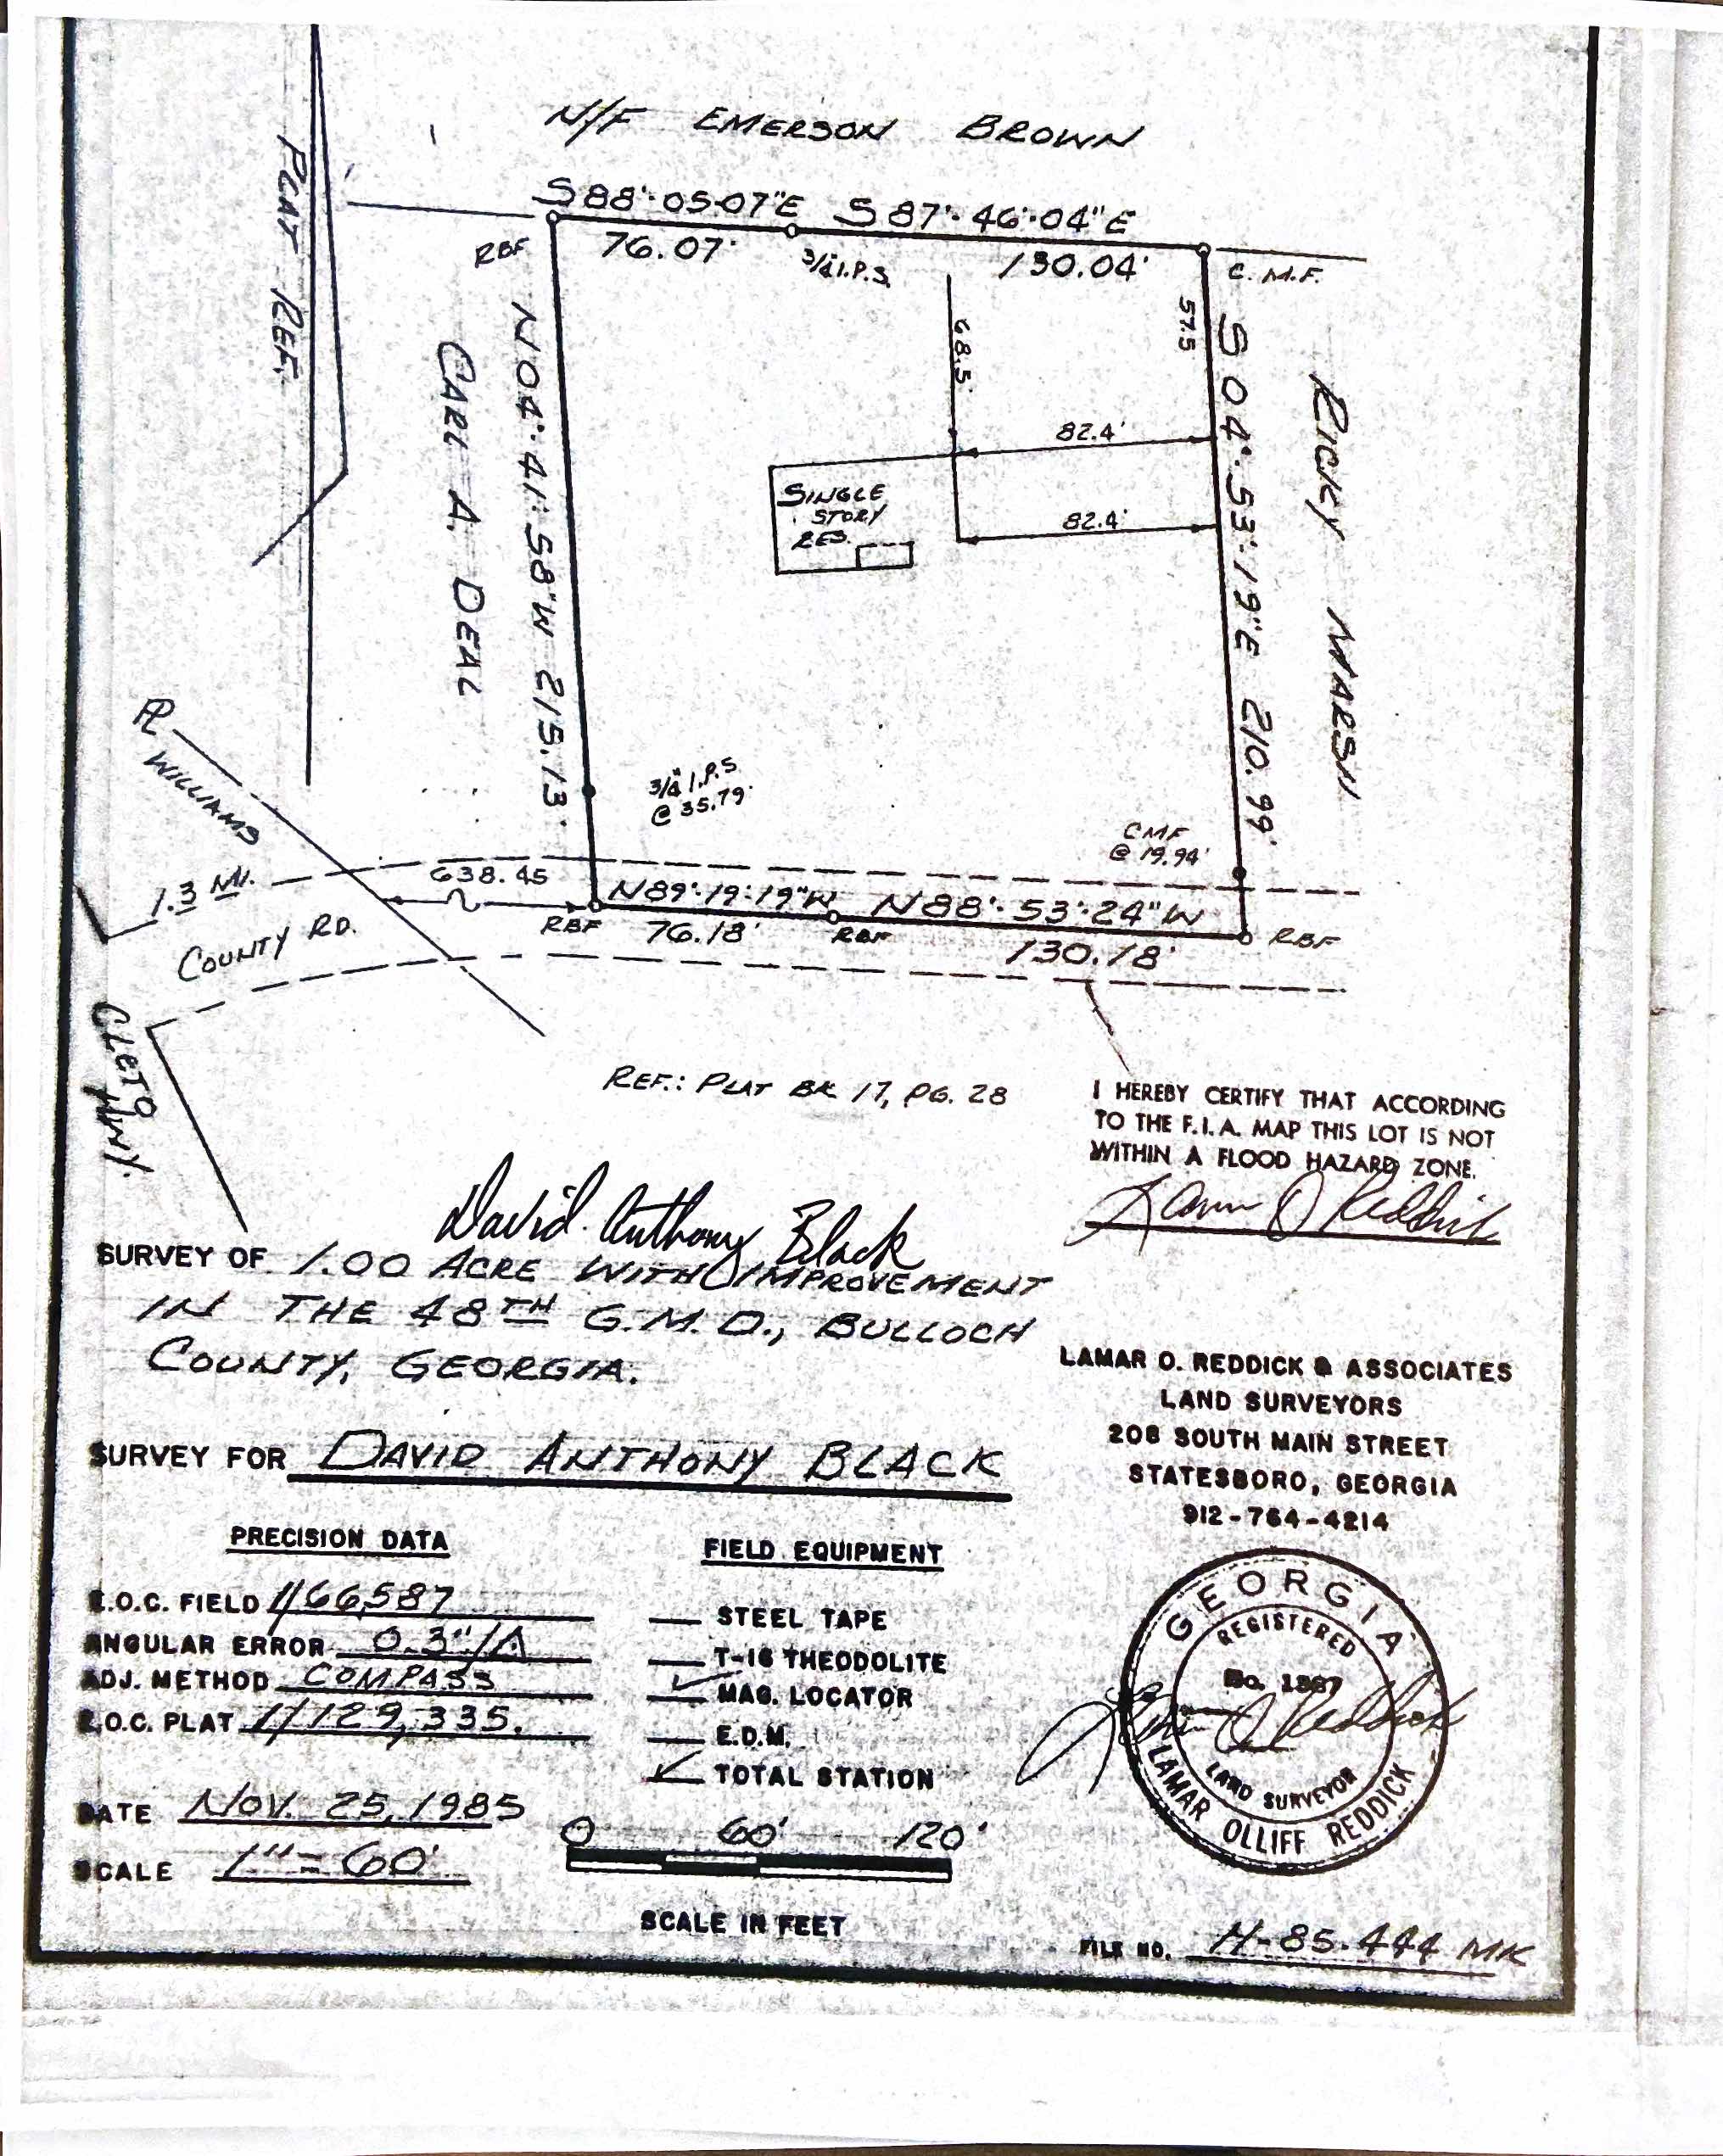 N/F EMERSON BROWN
PLAT REF.
S88°-05-07"E S87°-46'-04"E
RBF 76.07' 3/4" I.P.S. 130.04' C. M.F.
N04°-41'-58"W 215.13'
CARL A. DEAL
68.5'
57.5
S04°-53'-19"E 210.99'
RICKY MARSH
82.4'
82.4'
SINGLE
STORY
RES.
PL
WILLIAMS
3/4" I.P.S
@ 35.79'
CMF
@ 19.94'
1.3 MI.
638.45
N89°-19'-19"W N88°-53'-24"W
RBF 76.18' RBF 130.18' RBF
COUNTY RD.
CLETO
HWY.
REF.: PLAT BK 17, PG. 28
I HEREBY CERTIFY THAT ACCORDING
TO THE F.I.A. MAP THIS LOT IS NOT
WITHIN A FLOOD HAZARD ZONE.
Lamar O Reddick
David Anthony Black
SURVEY OF 1.00 ACRE WITH IMPROVEMENT
IN THE 48TH G.M.D., BULLOCH
COUNTY, GEORGIA.
LAMAR O. REDDICK & ASSOCIATES
LAND SURVEYORS
208 SOUTH MAIN STREET
STATESBORO, GEORGIA
912-764-4214
SURVEY FOR DAVID ANTHONY BLACK
PRECISION DATA
E.O.C. FIELD 1/66,587
ANGULAR ERROR 0.3"/Δ
ADJ. METHOD COMPASS
E.O.C. PLAT 1/129,335.
DATE NOV. 25, 1985
SCALE 1"=60'
FIELD EQUIPMENT
STEEL TAPE
T-16 THEODOLITE
✓ MAG. LOCATOR
E.D.M.
✓ TOTAL STATION
0 60' 120'
SCALE IN FEET
GEORGIA
REGISTERED
No. 1387
Lamar O Reddick
LAND SURVEYOR
LAMAR OLLIFF REDDICK
FILE NO. H-85-444 MK